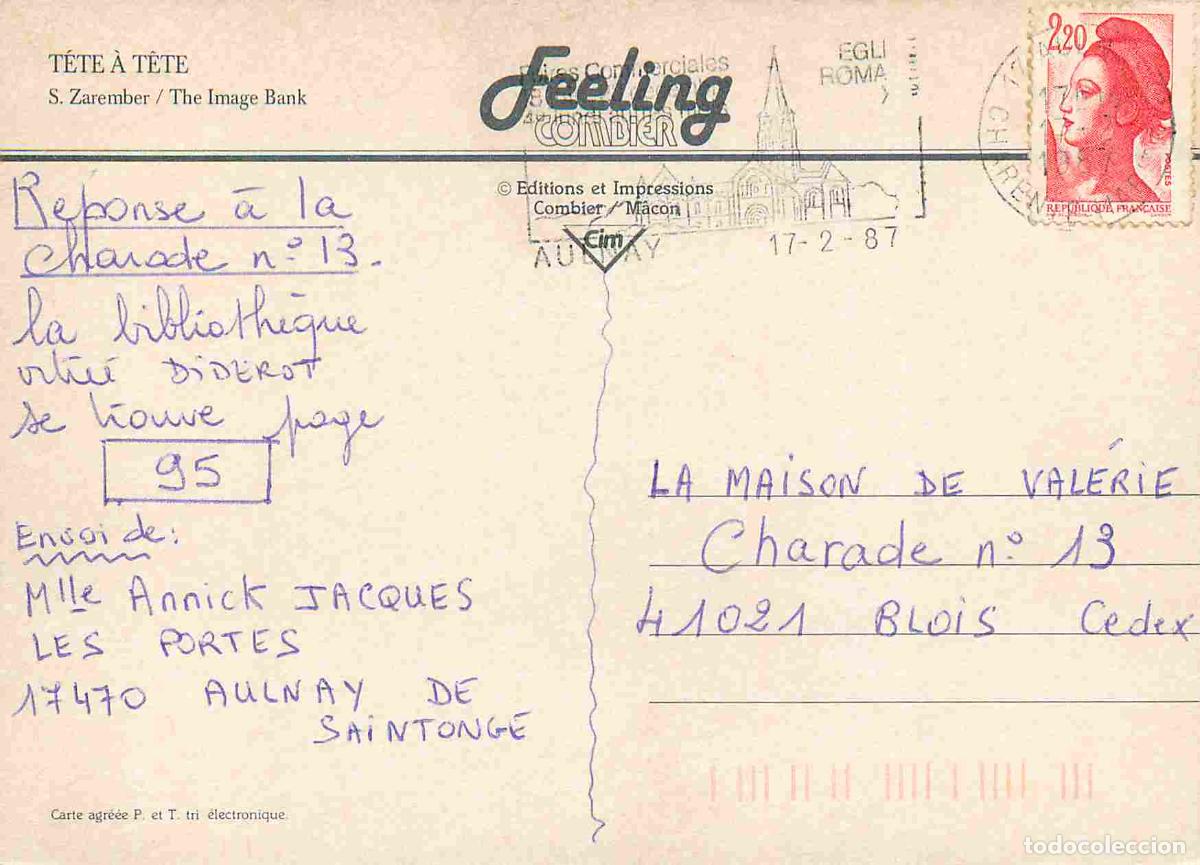 TÉTE À TÊTE
S. Zarember / The Image Bank
Feeling
COMBIER
Foires Commerciales
EGLI
ROMA
2,20
POSTES
REPUBLIQUE FRANÇAISE
© Editions et Impressions
Combier / Mâcon
Cim
AULNAY
17-2-87
Réponse à la
Charade n° 13.
la bibliothèque
vitrée DIDEROT
se trouve page
95
Envoi de:
Mlle Annick JACQUES
LES PORTES
17470 AULNAY DE
SAINTONGE
LA MAISON DE VALÉRIE
Charade n° 13
41021 BLOIS Cedex
Carte agréée P. et T. tri électronique.
todocoleccion